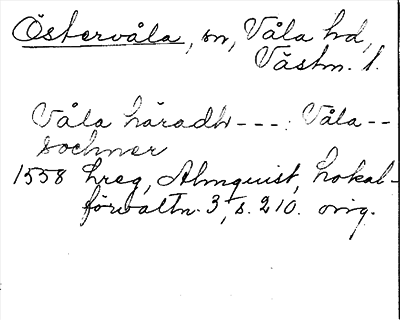 Östervåla, sn, Våla hd,
Västm. l.
Våla häradh --- : Våla --
sochner
1558 hreg, Almquist, Lokal-
förvaltn. 3, s. 210. orig.